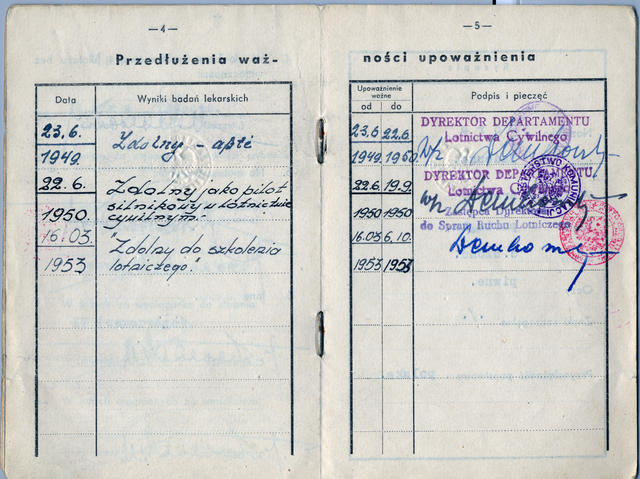 —4—
Przedłużenia waż-
Data
Wyniki badań lekarskich
23.6.
1949.
Zdolny - apte
22.6.
1950.
Zdolny jako pilot
silnikowy w lotnictwie
cywilnym.
16.03.
1953
"Zdolny do szkolenia
lotniczego".
—5—
ności upoważnienia
Upoważnienie
ważne
od do
Podpis i pieczęć
23.6 22.6.
1949. 1950.
DYREKTOR DEPARTAMENTU
Lotnictwa Cywilnego
wz
22.6. 19.9.
1950 1950
DYREKTOR DEPARTAMENTU
Lotnictwa Cywilnego
wz.
16.03 6.10.
1953 1953
Zastępca Dyrektora
do Spraw Ruchu Lotniczego